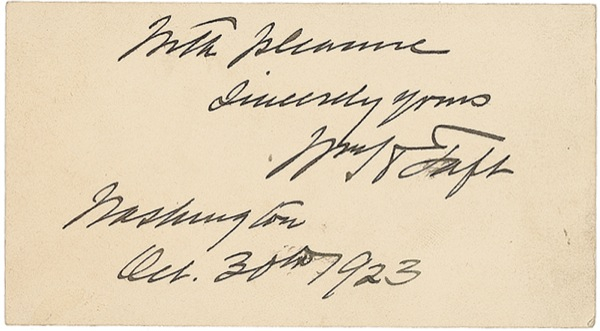 With pleasure
Sincerely yours
Wm H Taft
Washington
Oct. 30th 1923